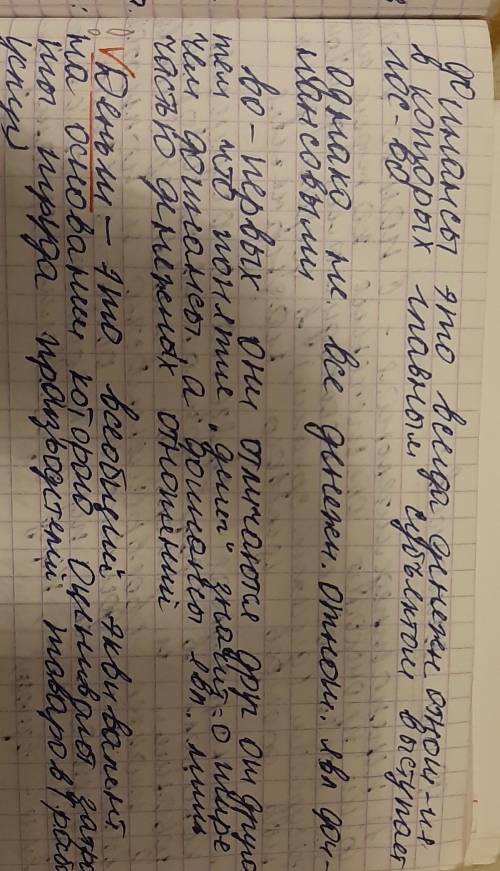 финансы это всегда денежн отнош-ия
в которых главным субъектом выступает
гос-во
однако не все денежн. отнош. явл фи-
нансовыми
во-первых они отличаются друг от друга
тем что понятие "деньги" значит-о шире
чем финансы, а финансы явл. лишь
частью денежных отношений
Деньги – это всеобщий эквивалент
на основании которого оценивают затра
ты труда производителей товаров, раб
услуг